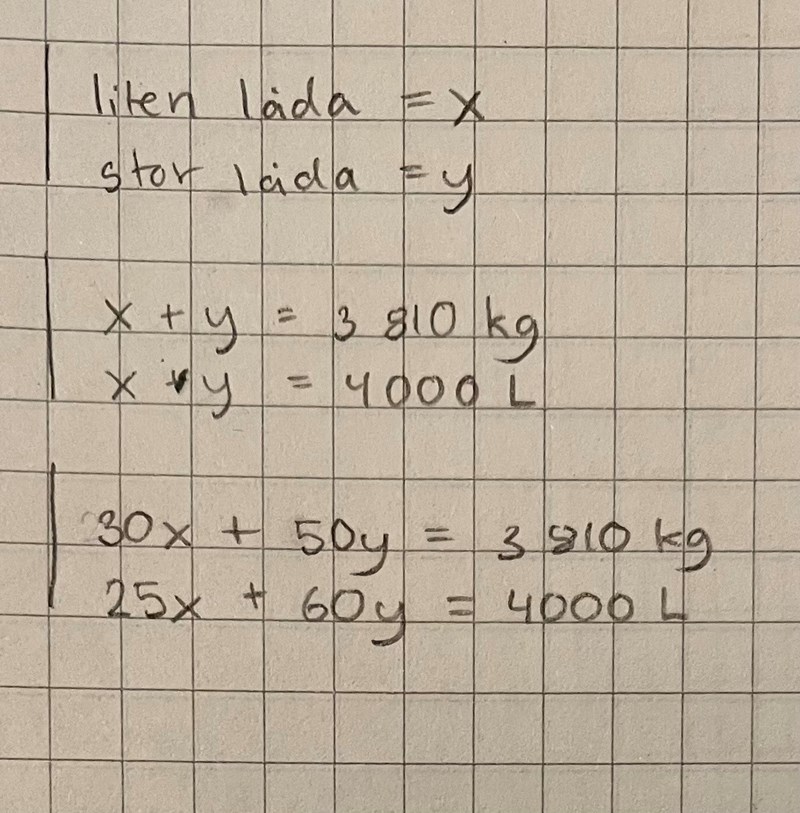 liten låda = x
stor låda = y
x + y = 3 810 kg
x + y = 4000 L
30x + 50y = 3 810 kg
25x + 60y = 4000 L